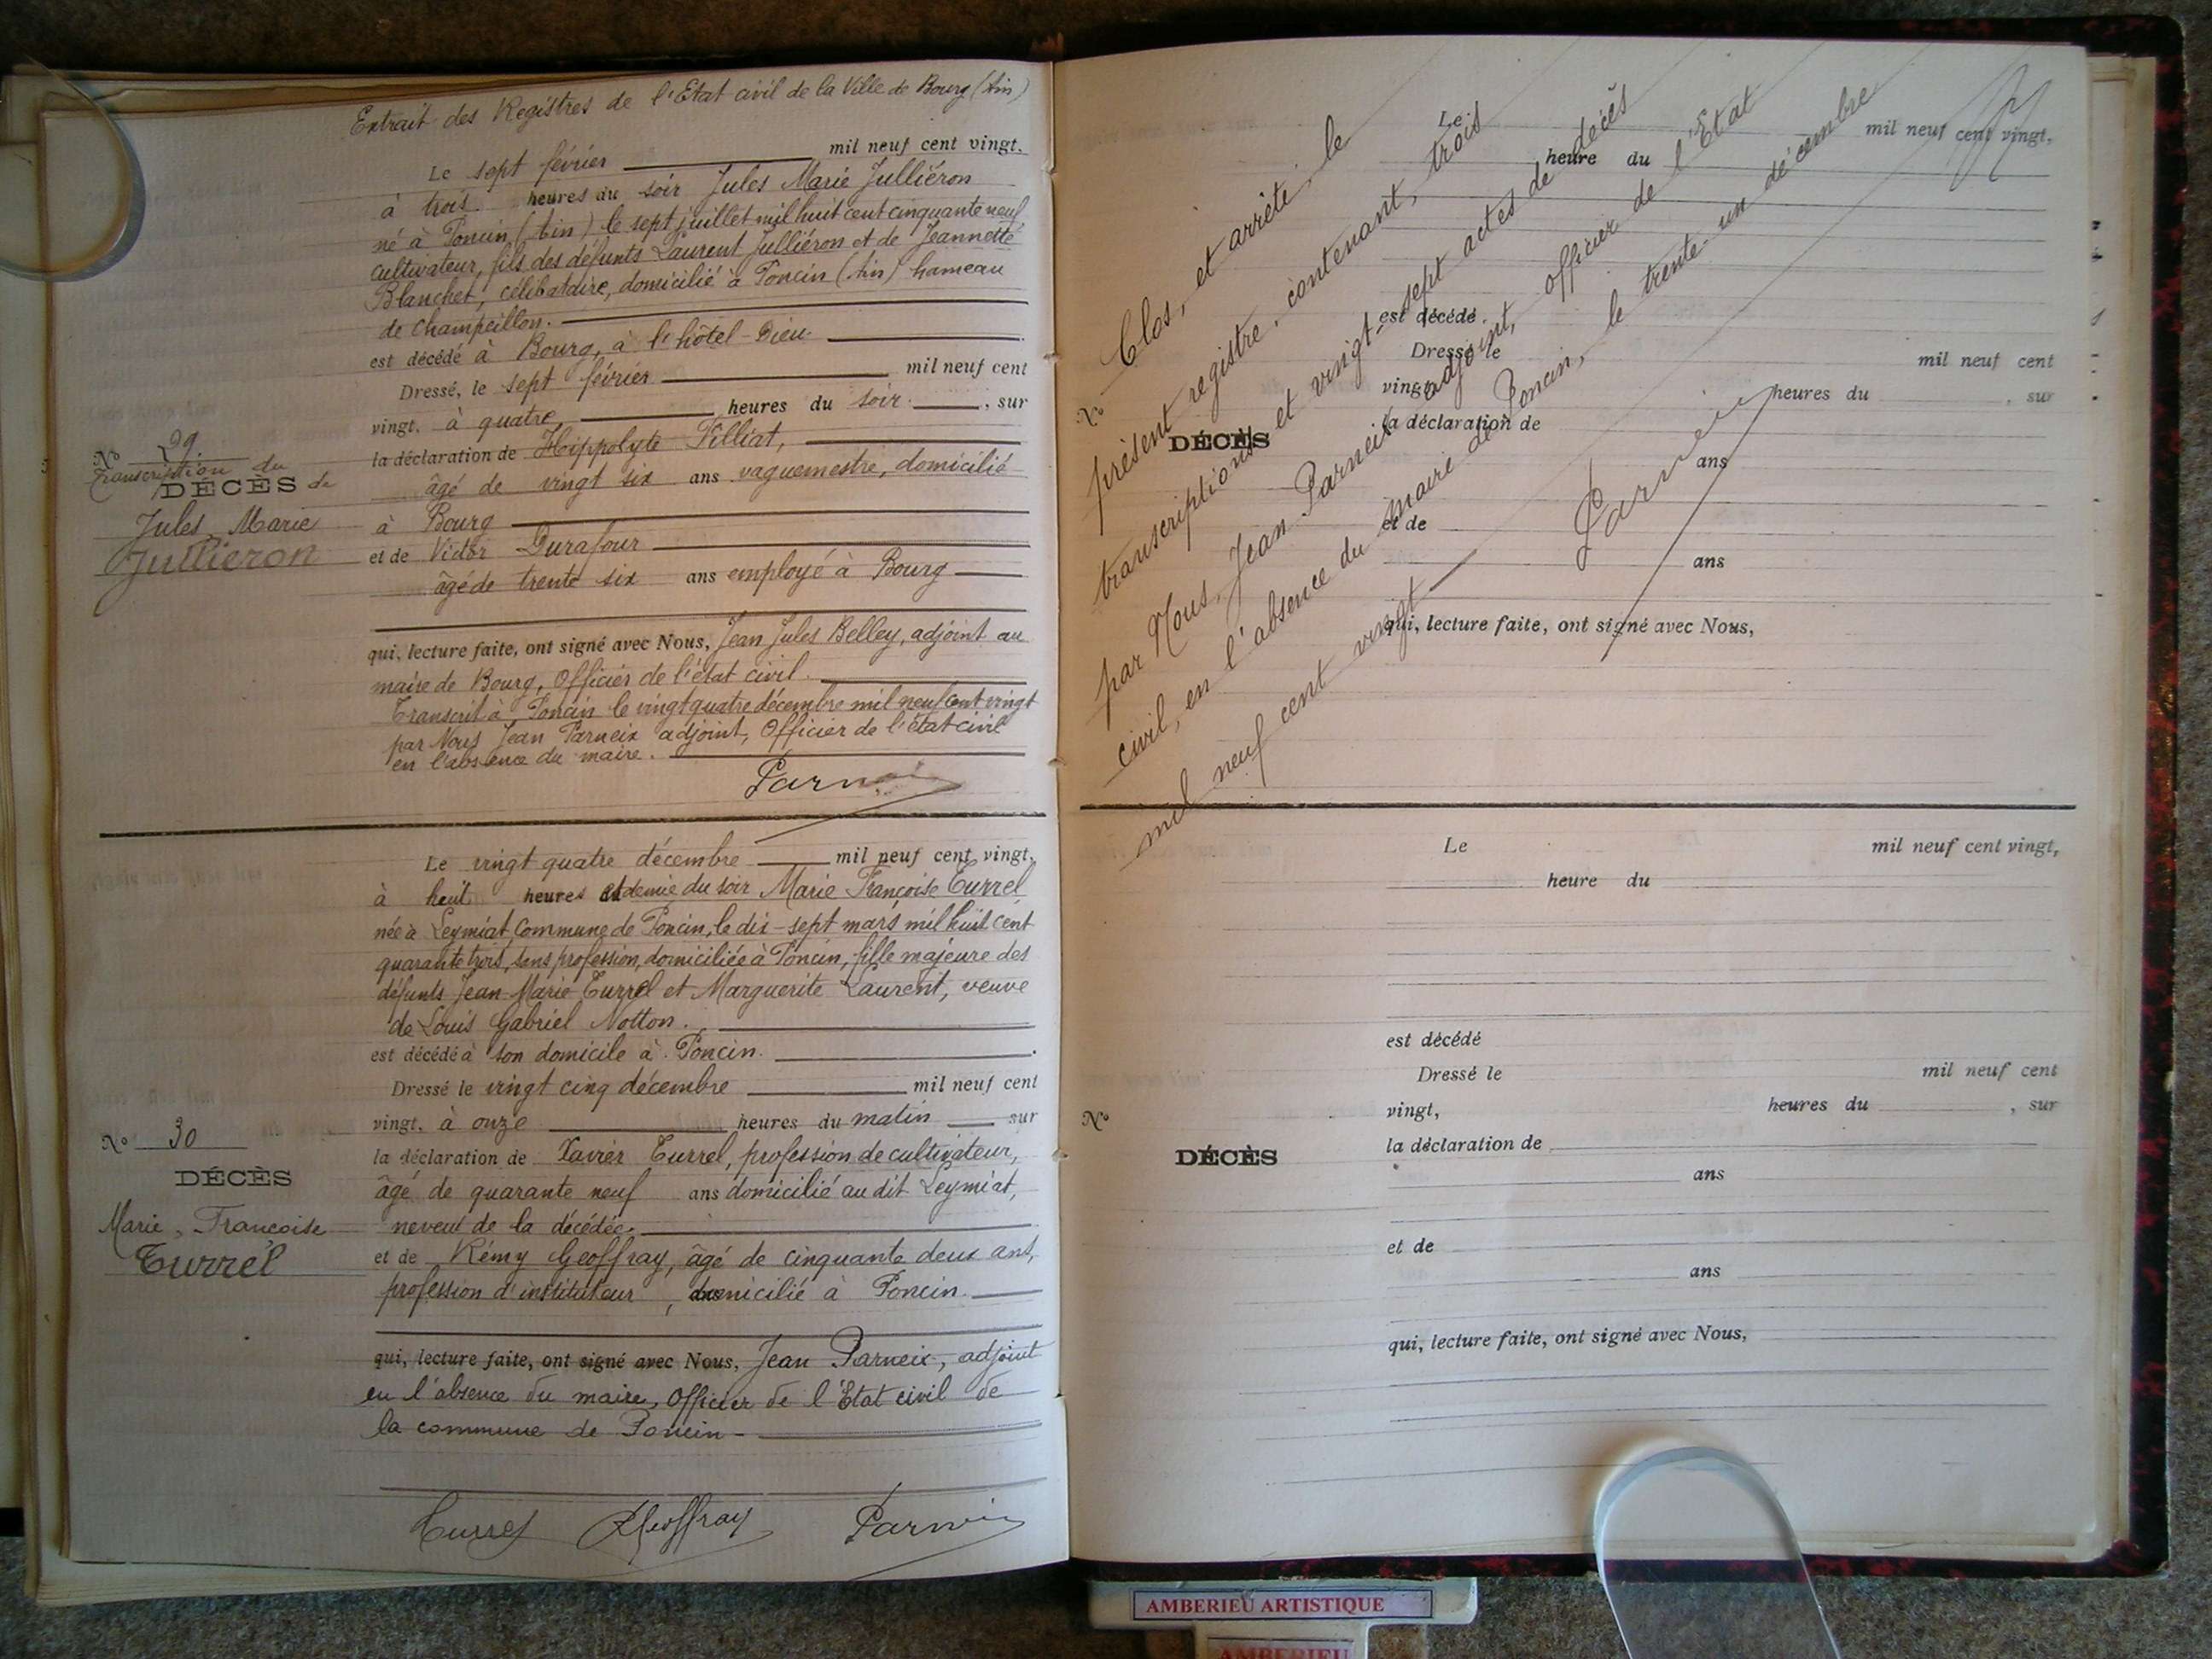 Extrait des Registres de l'Etat civil de la Ville de Bourg (Ain)
Le sept février mil neuf cent vingt.
à trois heures du soir Jules Marie Julliéron
né à Poncin (Ain) le sept juillet mil huit cent cinquante neuf
cultivateur, fils des défunts Laurent Julliéron et de Jeannette
Blanchet, célibataire, domicilié à Poncin (Ain) hameau
de Champeillon.
est décédé à Bourg, à l'hôtel-Dieu
Dressé, le sept février mil neuf cent
vingt, à quatre, heures du soir, sur
la déclaration de Hippolyte Pilliat,
âgé de vingt six ans vaguemestre, domicilié
à Bourg
et de Victor Durafour
âgé de trente six ans employé à Bourg
qui, lecture faite, ont signé avec Nous, Jean Jules Belley, adjoint au
maire de Bourg, Officier de l'état civil.
Transcrit à Poncin le vingt quatre décembre mil neuf cent vingt
par Nous Jean Parneix adjoint, Officier de l'état civil
en l'absence du maire.
Parneix
N° 29
Transcription du
DÉCÈS de
Jules Marie
Julliéron
Le vingt quatre décembre mil neuf cent vingt,
à huit heures et demie du soir Marie Françoise Turrel
née à Leymiat, commune de Poncin, le dix-sept mars mil huit cent
quarante trois, sans profession, domiciliée à Poncin, fille majeure des
défunts Jean-Marie Turrel et Marguerite Laurent, veuve
de Louis Gabriel Notton.
est décédé à son domicile à Poncin.
Dressé le vingt cinq décembre mil neuf cent
vingt, à onze heures du matin sur
la déclaration de Xavier Turrel, profession de cultivateur,
âgé de quarante neuf ans domicilié au dit Leymiat,
neveu de la décédée.
et de Rémy Geoffray, âgé de cinquante deux ans,
profession d'instituteur, domicilié à Poncin.
qui, lecture faite, ont signé avec Nous, Jean Parneix, adjoint
en l'absence du maire, Officier de l'Etat civil de
la commune de Poncin -
Turrel RGeoffray Parneix
N° 30
DÉCÈS
Marie, Françoise
Turrel
Clos, et arrêté, le
présent registre, contenant, trois
transcriptions et vingt-sept actes de décès
par Nous, Jean Parneix adjoint, officier de l'Etat
civil, en l'absence du maire de Poncin, le trente-un décembre
mil neuf cent vingt
Parneix
Le mil neuf cent vingt,
heure du
est décédé
Dressé le mil neuf cent
vingt, heures du , sur
la déclaration de
ans
et de
ans
qui, lecture faite, ont signé avec Nous,
N°
DÉCÈS
Le mil neuf cent vingt,
heure du
est décédé
Dressé le mil neuf cent
vingt, heures du , sur
la déclaration de
ans
et de
ans
qui, lecture faite, ont signé avec Nous,
N°
DÉCÈS
AMBERIEU ARTISTIQUE
AMBERIEU